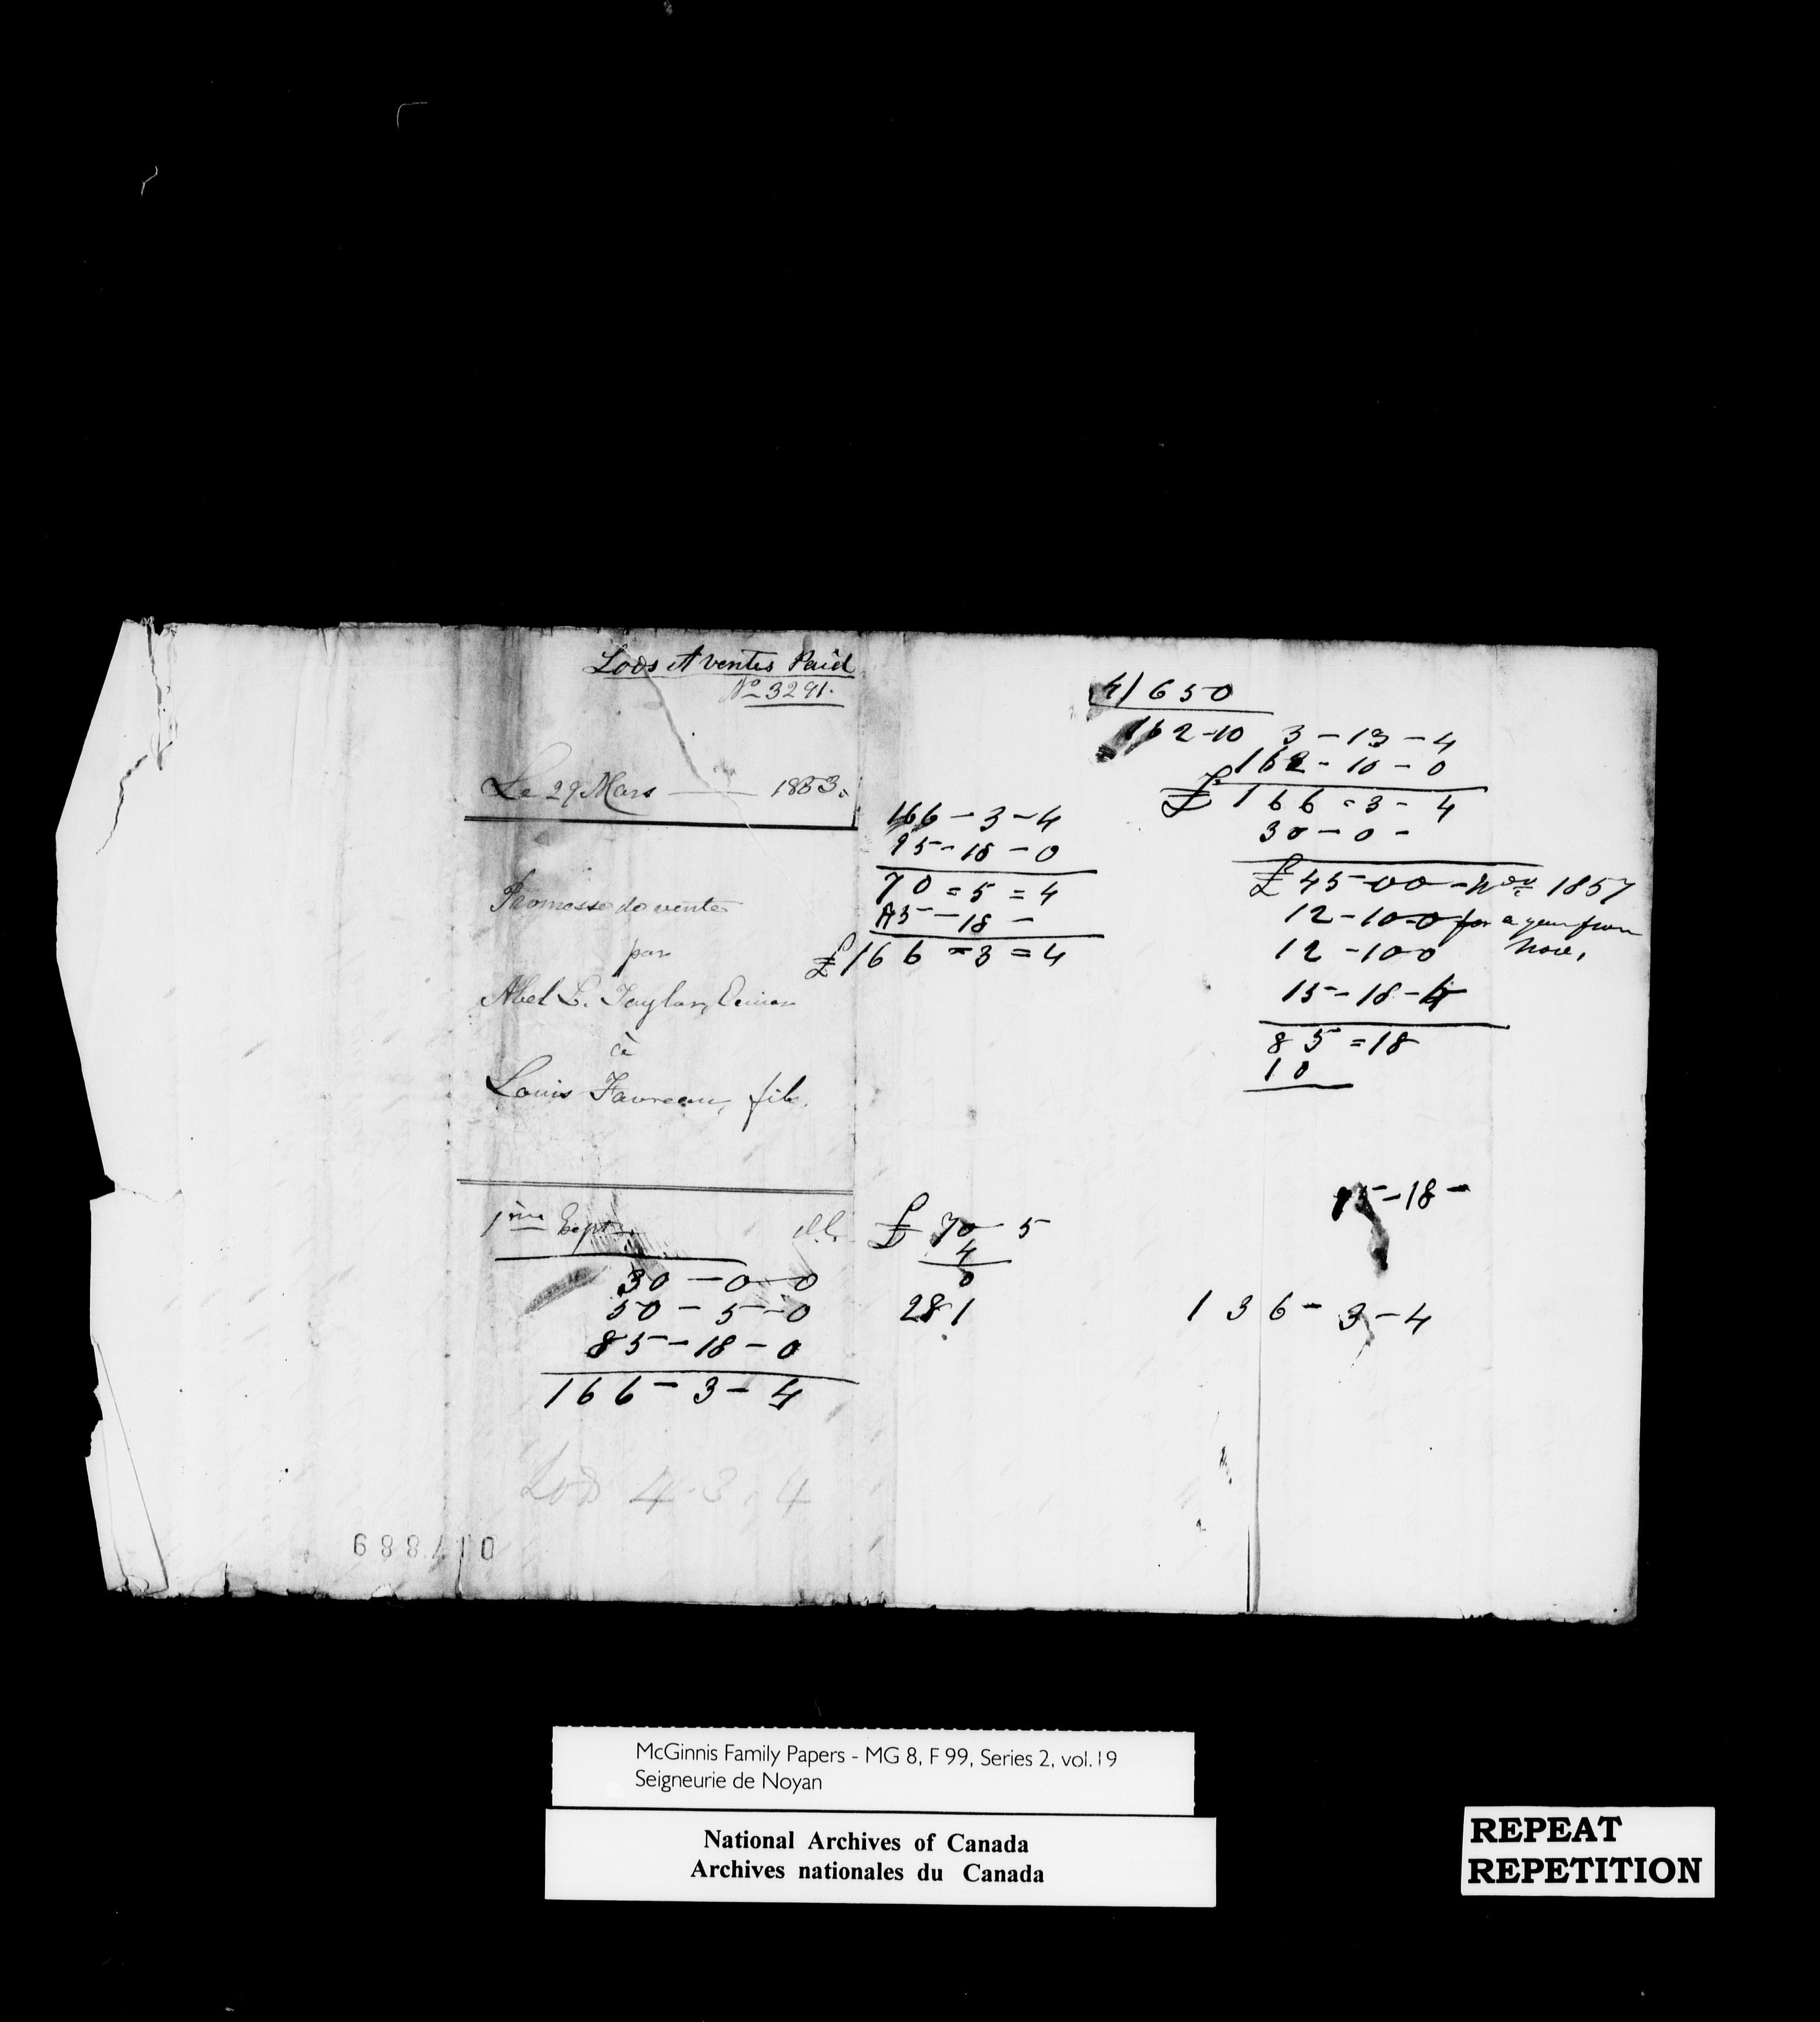 Lods et ventes Paid
No 3291.
Le 29 Mars — 1853.
Promesse de vente
par
Abel L. Taylor,
à
Louis Favreau, fils.
1ère Expn.
30 - 0 - 0
50 - 5 - 0
85 - 18 - 0
166 - 3 - 4
Lods 4 - 3 . 4
166 - 3 - 4
95 - 18 - 0
70 = 5 = 4
95 - 18 -
£ 166 = 3 = 4
£ 70 - 5
4
0
281
4) 650
162 - 10
3 - 13 - 4
162 - 10 - 0
£ 166 = 3 - 4
30 - 0 -
£ 45-00 - Nov 1857
12 - 10-0 for a year from
12 - 100 Nov.
15 - 18 -
85 = 18
10
15 - 18 -
136 - 3 - 4
McGinnis Family Papers - MG 8, F 99, Series 2, vol.19
Seigneurie de Noyan
National Archives of Canada
Archives nationales du Canada
REPEAT
REPETITION